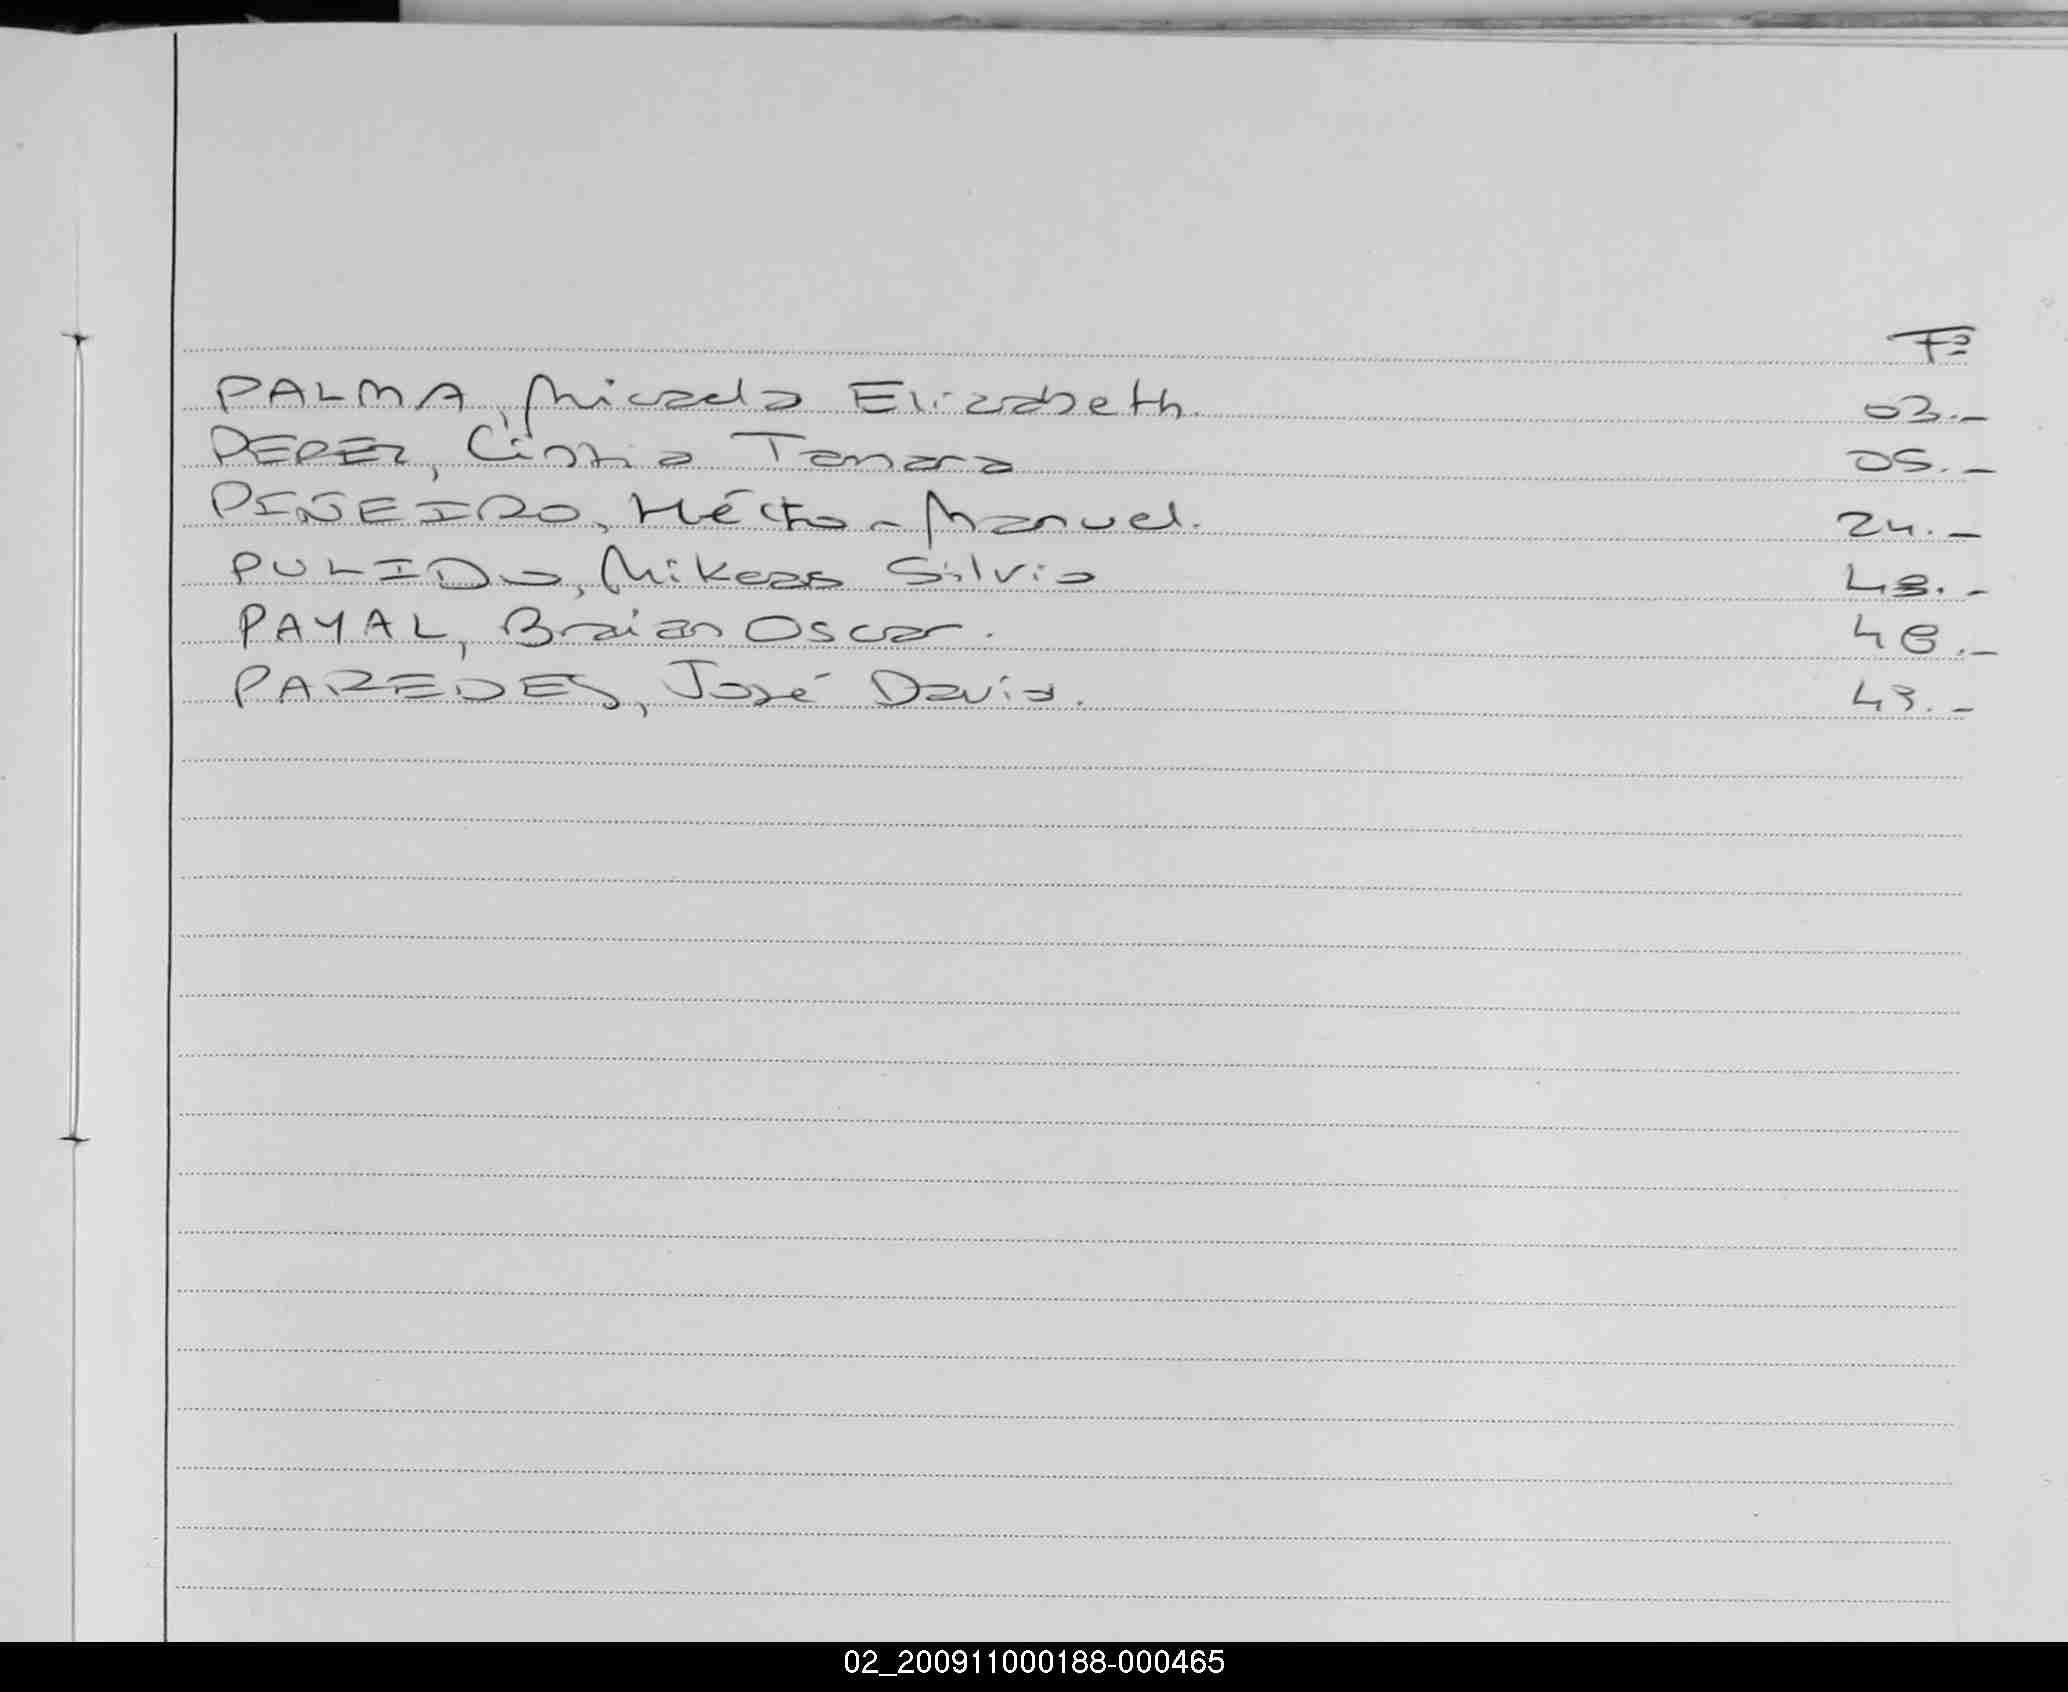 Fº
PALMA, Micaela Elizabeth. 03.-
PEREZ, Cintia Tamara 05.-
PIÑEIRO, Héctor Manuel. 24.-
PULIDO, Mikeas Silvio 43.-
PAYAL, Braian Oscar. 48.-
PAREDES, José David. 43.-
02_200911000188-000465